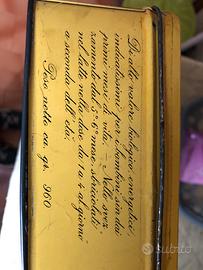 Di alto valore fisiologico, energetici
indicatissimi per i bambini sin dai
primi mesi di vita. - Nello svez
zamento del 5°-6° mese, sbriciolati
nel latte nella dose da 1 a 4 al giorno
a seconda dell'età.
Peso netto ca. gr. 960
subito